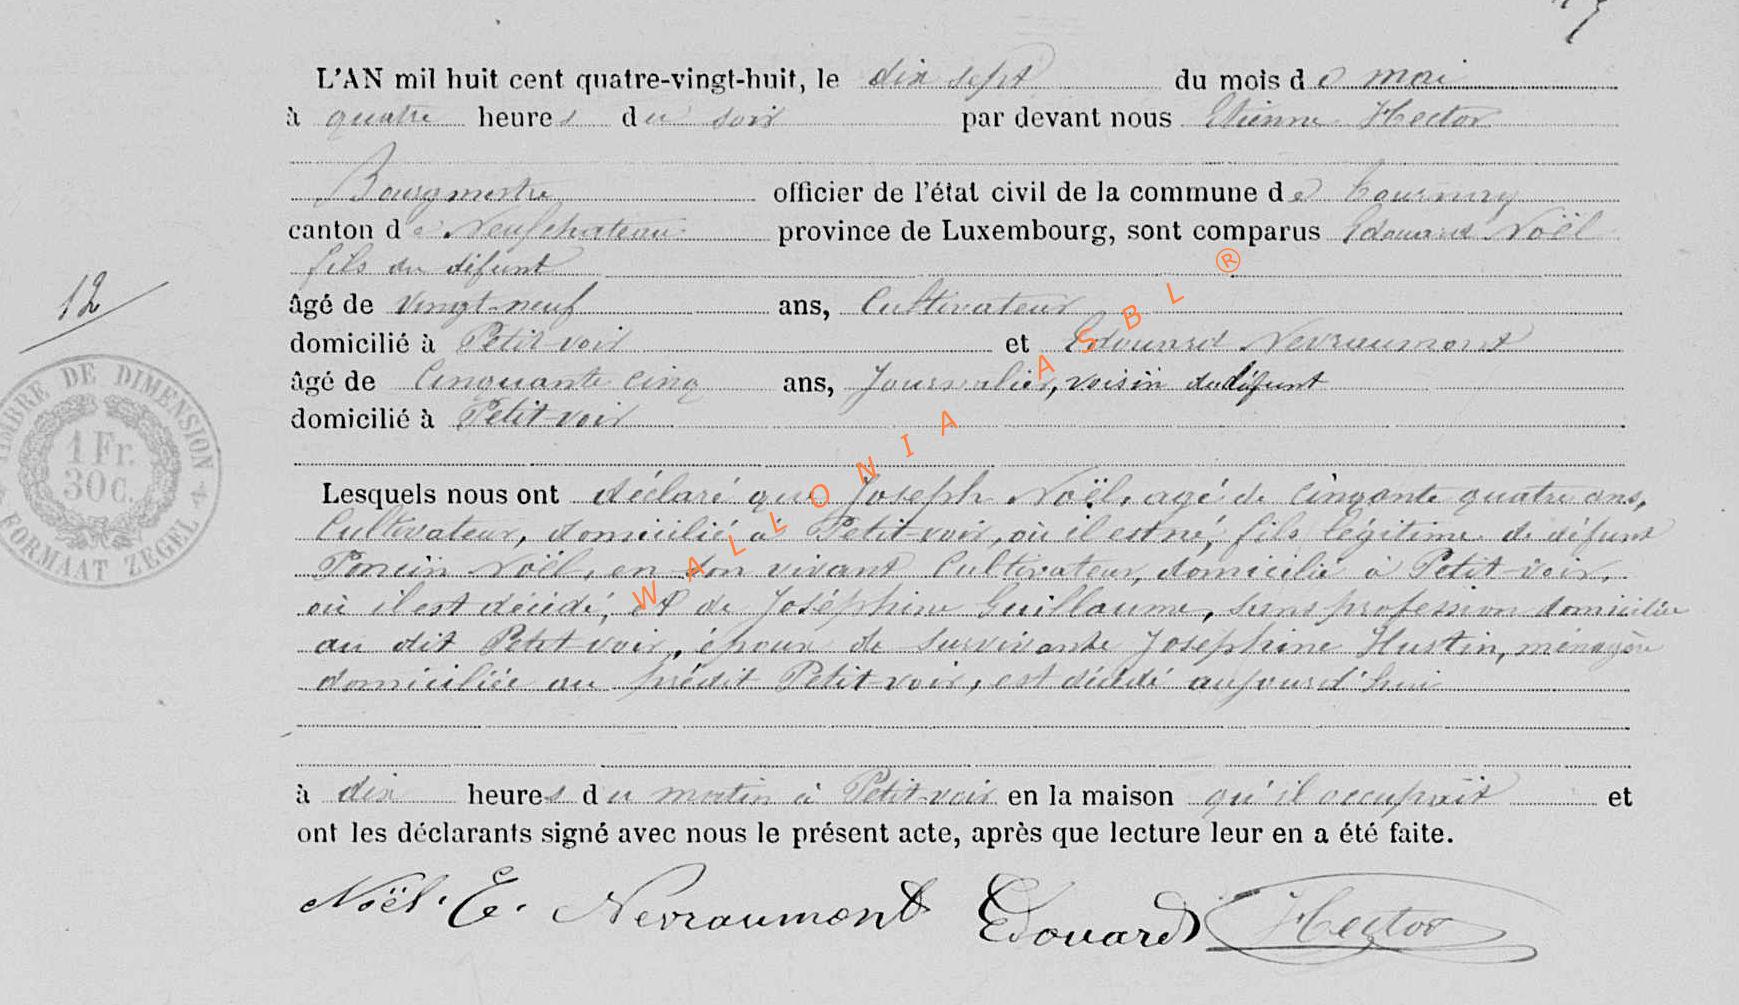 L'AN mil huit cent quatre-vingt-huit, le dix sept du mois de mai
à quatre heures du soir par devant nous Etienne Hector
Bourgmestre officier de l'état civil de la commune de Tournay
canton de Neufchateau province de Luxembourg, sont comparus Edouard Noël
fils du défunt
âgé de vingt-neuf ans, Cultivateur
domicilié à Petit-voir et Edouard Nevraumont
âgé de Cinquante cinq ans, Journalier, voisin du défunt
domicilié à Petit-voir
12
TIMBRE DE DIMENSION
1 Fr.
30 c.
FORMAAT ZEGEL
Lesquels nous ont déclaré que Joseph Noël, agé de cinqante quatre ans,
Cultivateur, domicilié à Petit-voir, où il est né, fils légitime de défunt
Poncin Noël, en son vivant Cultivateur, domicilié à Petit-voir,
où il est décédé, et de Joséphine Guillaume, sans profession domiciliée
au dit Petit-voir, époux de survivante Josephine Hustin, ménagère
domiciliée au prédit Petit-voir, est décédé aujourd'hui
à dix heures du matin à Petit-voir en la maison qu'il occupait et
ont les déclarants signé avec nous le présent acte, après que lecture leur en a été faite.
Noël. E. Nevraumont Edouard Hector
WALLONIA ASBL ®